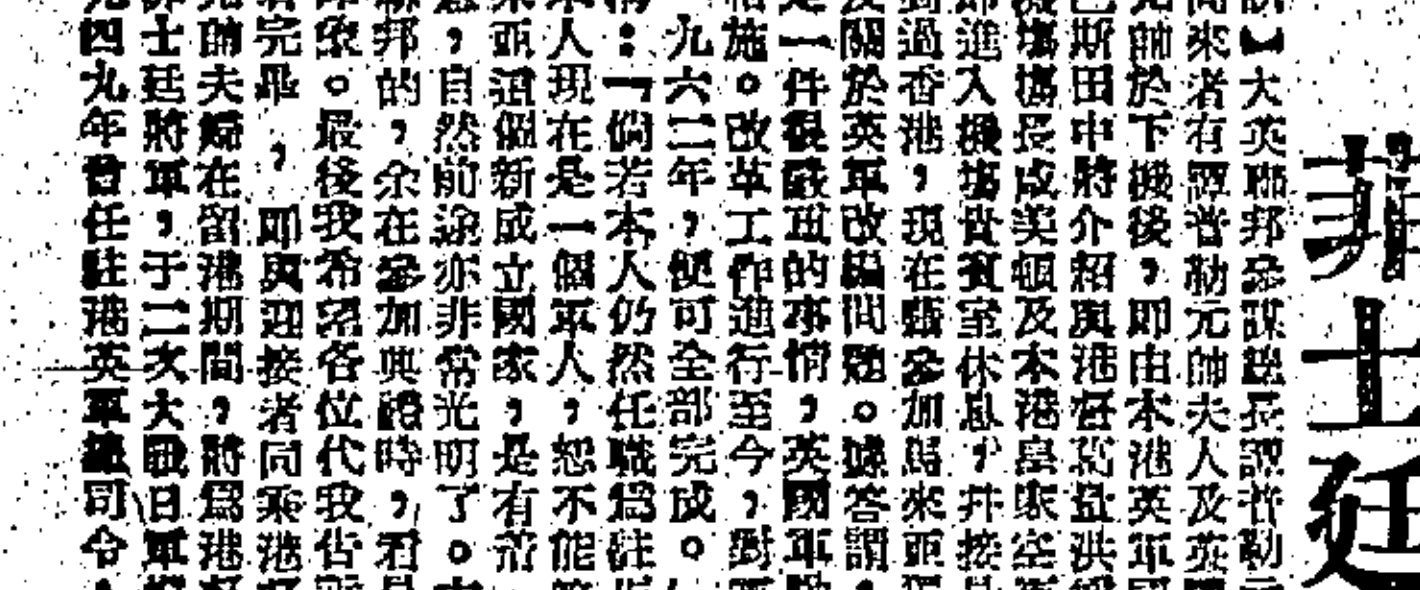 菲士廷
】大英聯邦參謀總長譚普勒
來者有譚普勒元帥夫人及英
帥於下機後,即由本港英軍
斯田中將介紹與港督葛量洪
塲塲長成美頓及本港皇家空
進入機塲貴賓室休息,并接
過香港,現在雖參加馬來亞
關於英軍改編問題。據答謂
一件很嚴重的事情,英國軍
施。改革工作進行至今,對
九六二年,便可全部完成。
:「倘若本人仍然任職爲駐
人現在是一個軍人,恕不能
亞這個新成立國家,是有前
,自然前途亦非常光明了。
邦的,余在參加典禮時,君
象。最後我希望各位代我告
完畢,即與迎接者同乘港
帥夫婦在留港期間,將爲港
士廷將軍,于二次大戰日軍
四九年曾任駐港英軍總司令